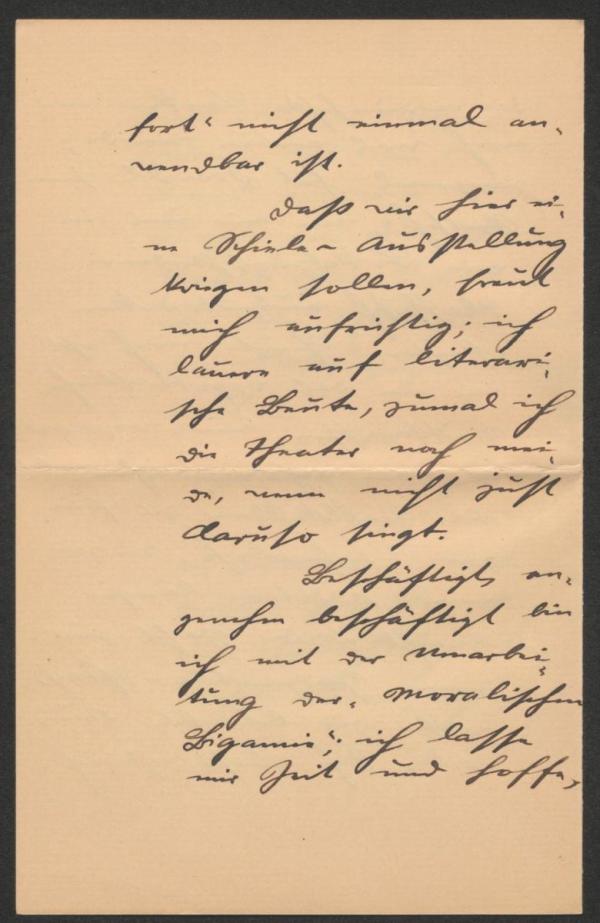 fort“ nicht einmal an-
wendbar ist.
Daß wir hier ei-
ne Schiele-Ausstellung
kriegen sollen, freut
mich aufrichtig; ich
lauere auf literari-
sche Beute, zumal ich
die Theater noch mei-
de, wenn nicht just
Caruso singt.
Beschäftigt, an-
genehm beschäftigt bin
ich mit der Umarbei-
tung der „Moralischen
Bigamie“; ich lasse
mir Zeit und hoffe,